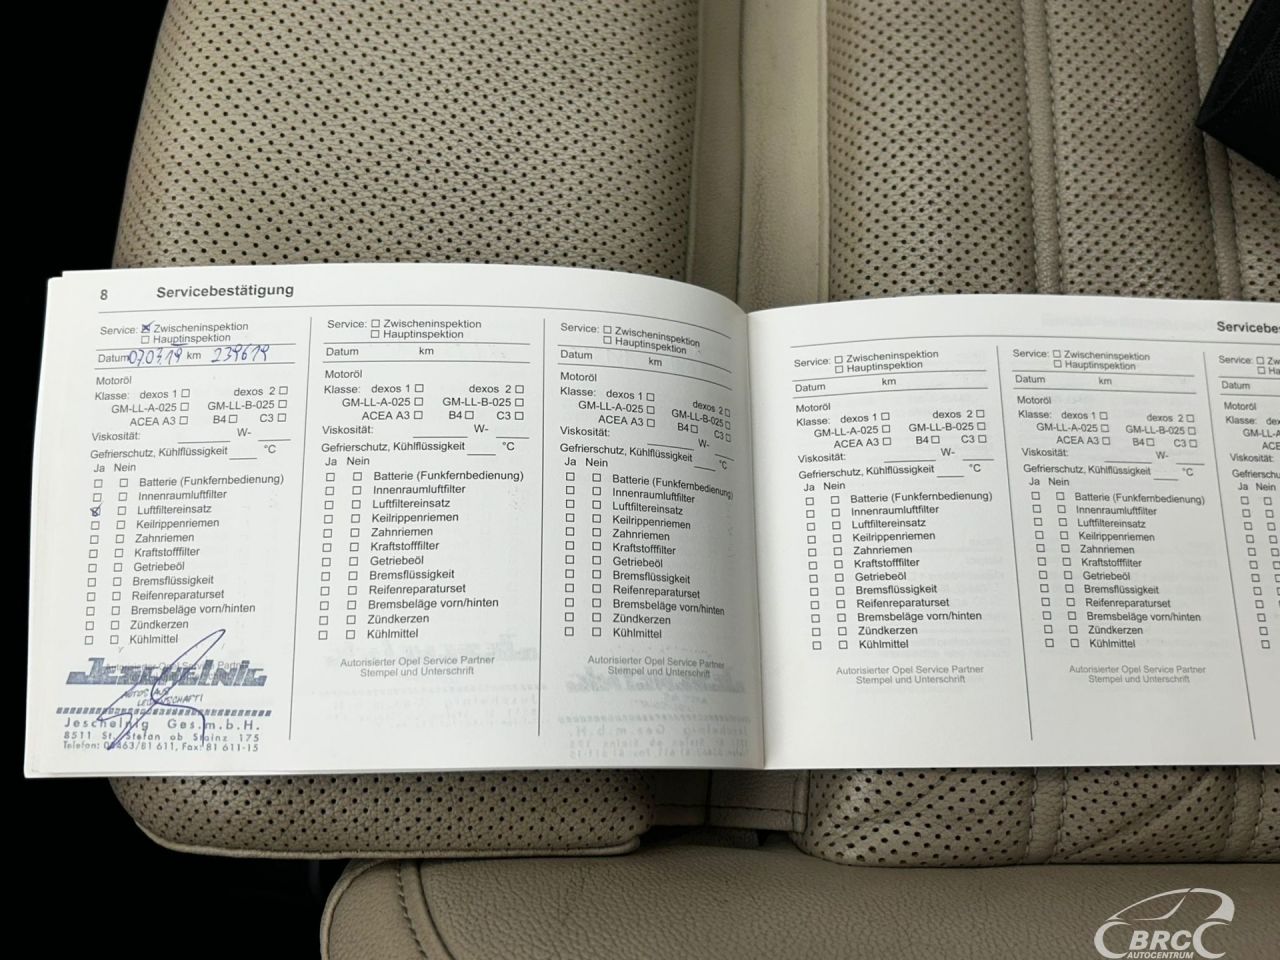 8 Servicebestätigung
Service: ☒ Zwischeninspektion
☐ Hauptinspektion
Datum 07.03.19 km 239619
Motoröl
Klasse: dexos 1 ☐ dexos 2 ☐
GM-LL-A-025 ☐ GM-LL-B-025 ☐
ACEA A3 ☐ B4 ☐ C3 ☐
Viskosität: ____ W- ____
Gefrierschutz, Kühlflüssigkeit ____ °C
Ja Nein
☐ ☐ Batterie (Funkfernbedienung)
☐ ☐ Innenraumluftfilter
☒ ☐ Luftfiltereinsatz
☐ ☐ Keilrippenriemen
☐ ☐ Zahnriemen
☐ ☐ Kraftstofffilter
☐ ☐ Getriebeöl
☐ ☐ Bremsflüssigkeit
☐ ☐ Reifenreparaturset
☐ ☐ Bremsbeläge vorn/hinten
☐ ☐ Zündkerzen
☐ ☐ Kühlmittel
Autorisierter Opel Service Partner
Jeschelnig
AUTOS AUS
LEIDENSCHAFT!
Jeschelnig Ges.m.b.H.
8511 St. Stefan ob Stainz 175
Telefon: 03463/81 611, Fax: 81 611-15
Service: ☐ Zwischeninspektion
☐ Hauptinspektion
Datum km
Motoröl
Klasse: dexos 1 ☐ dexos 2 ☐
GM-LL-A-025 ☐ GM-LL-B-025 ☐
ACEA A3 ☐ B4 ☐ C3 ☐
Viskosität: ____ W- ____
Gefrierschutz, Kühlflüssigkeit ____ °C
Ja Nein
☐ ☐ Batterie (Funkfernbedienung)
☐ ☐ Innenraumluftfilter
☐ ☐ Luftfiltereinsatz
☐ ☐ Keilrippenriemen
☐ ☐ Zahnriemen
☐ ☐ Kraftstofffilter
☐ ☐ Getriebeöl
☐ ☐ Bremsflüssigkeit
☐ ☐ Reifenreparaturset
☐ ☐ Bremsbeläge vorn/hinten
☐ ☐ Zündkerzen
☐ ☐ Kühlmittel
Autorisierter Opel Service Partner
Stempel und Unterschrift
Service: ☐ Zwischeninspektion
☐ Hauptinspektion
Datum km
Motoröl
Klasse: dexos 1 ☐ dexos 2 ☐
GM-LL-A-025 ☐ GM-LL-B-025 ☐
ACEA A3 ☐ B4 ☐ C3 ☐
Viskosität: ____ W- ____
Gefrierschutz, Kühlflüssigkeit ____ °C
Ja Nein
☐ ☐ Batterie (Funkfernbedienung)
☐ ☐ Innenraumluftfilter
☐ ☐ Luftfiltereinsatz
☐ ☐ Keilrippenriemen
☐ ☐ Zahnriemen
☐ ☐ Kraftstofffilter
☐ ☐ Getriebeöl
☐ ☐ Bremsflüssigkeit
☐ ☐ Reifenreparaturset
☐ ☐ Bremsbeläge vorn/hinten
☐ ☐ Zündkerzen
☐ ☐ Kühlmittel
Autorisierter Opel Service Partner
Stempel und Unterschrift
Servicebes
Service: ☐ Zwischeninspektion
☐ Hauptinspektion
Datum km
Motoröl
Klasse: dexos 1 ☐ dexos 2 ☐
GM-LL-A-025 ☐ GM-LL-B-025 ☐
ACEA A3 ☐ B4 ☐ C3 ☐
Viskosität: ____ W- ____
Gefrierschutz, Kühlflüssigkeit ____ °C
Ja Nein
☐ ☐ Batterie (Funkfernbedienung)
☐ ☐ Innenraumluftfilter
☐ ☐ Luftfiltereinsatz
☐ ☐ Keilrippenriemen
☐ ☐ Zahnriemen
☐ ☐ Kraftstofffilter
☐ ☐ Getriebeöl
☐ ☐ Bremsflüssigkeit
☐ ☐ Reifenreparaturset
☐ ☐ Bremsbeläge vorn/hinten
☐ ☐ Zündkerzen
☐ ☐ Kühlmittel
Autorisierter Opel Service Partner
Stempel und Unterschrift
Service: ☐ Zwischeninspektion
☐ Hauptinspektion
Datum km
Motoröl
Klasse: dexos 1 ☐ dexos 2 ☐
GM-LL-A-025 ☐ GM-LL-B-025 ☐
ACEA A3 ☐ B4 ☐ C3 ☐
Viskosität: ____ W- ____
Gefrierschutz, Kühlflüssigkeit ____ °C
Ja Nein
☐ ☐ Batterie (Funkfernbedienung)
☐ ☐ Innenraumluftfilter
☐ ☐ Luftfiltereinsatz
☐ ☐ Keilrippenriemen
☐ ☐ Zahnriemen
☐ ☐ Kraftstofffilter
☐ ☐ Getriebeöl
☐ ☐ Bremsflüssigkeit
☐ ☐ Reifenreparaturset
☐ ☐ Bremsbeläge vorn/hinten
☐ ☐ Zündkerzen
☐ ☐ Kühlmittel
Autorisierter Opel Service Partner
Stempel und Unterschrift
Service: ☐ Z
☐ H
Datum
Motoröl
Klasse: dex
GM-LL-A
ACEA
Viskosität:
Gefriersch
Ja Nein
BRC
AUTOCENTRUM